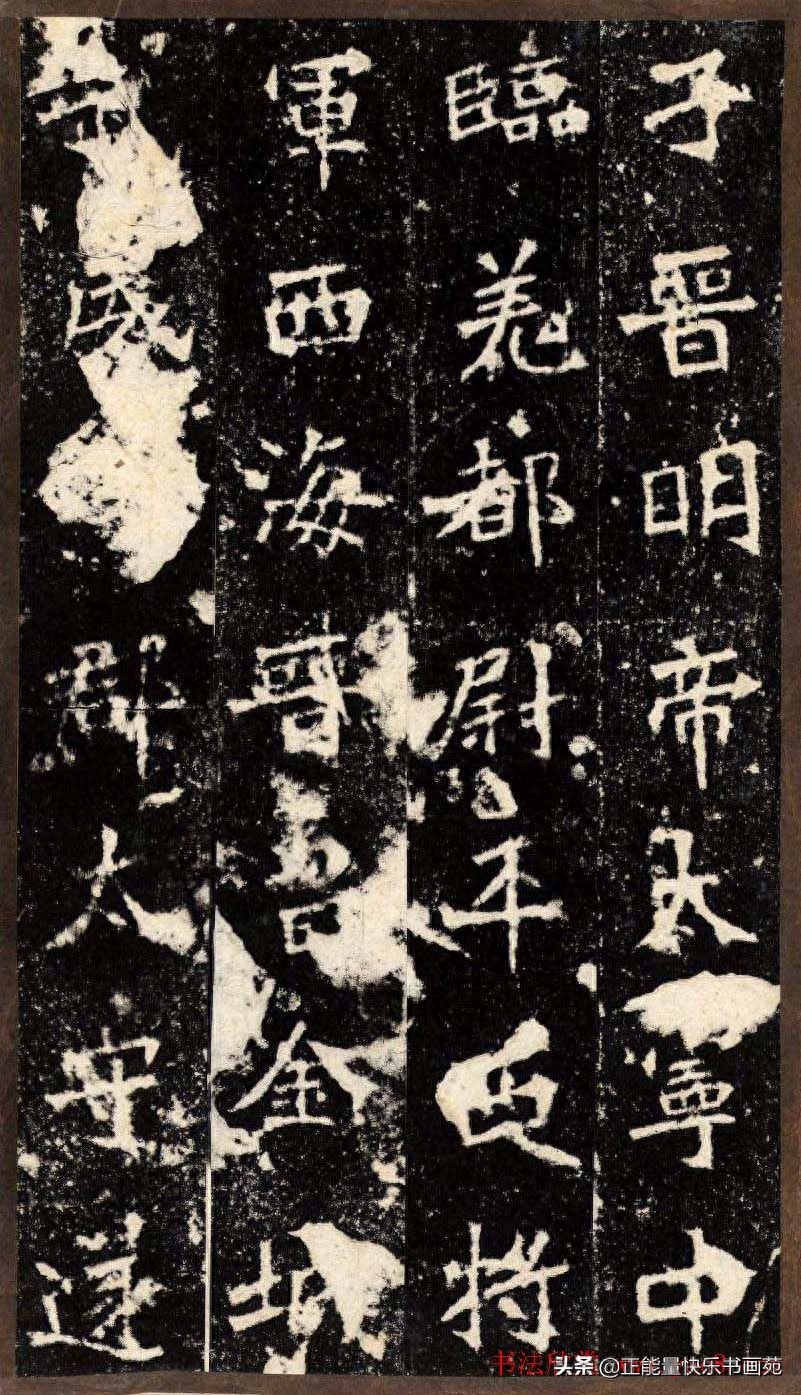 子晉明帝太寧中
臨羌都尉平西將
軍西海晉昌金城
武威郡太守遂
书法欣
头条 @正能量快乐书画苑